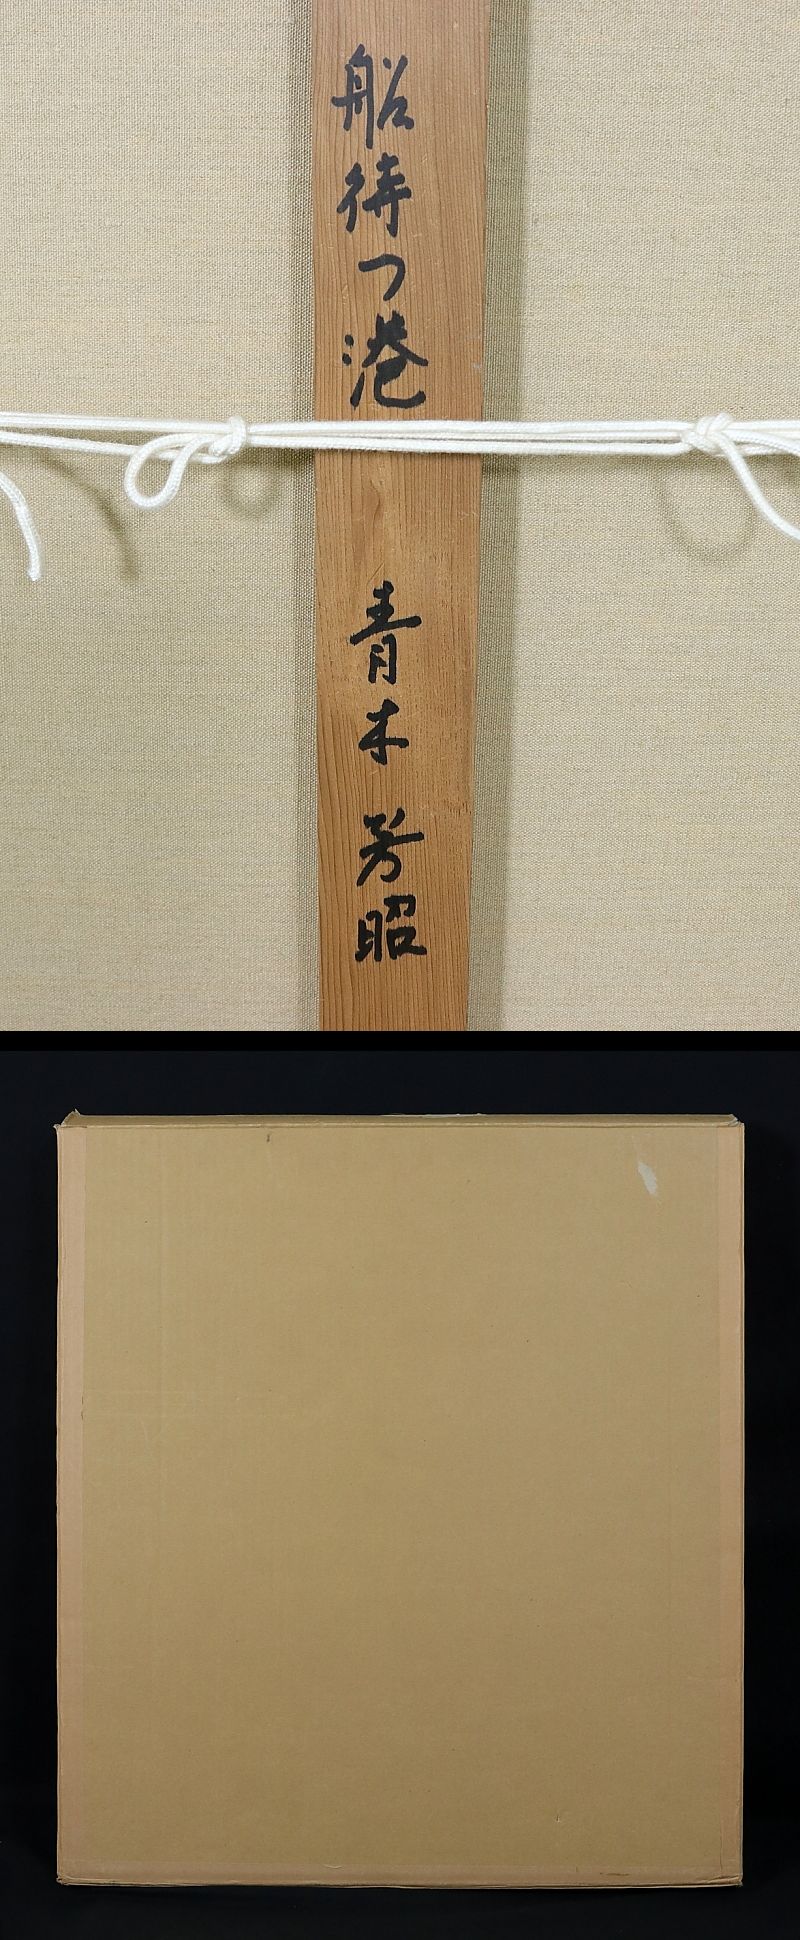 船待つ港
青木芳昭